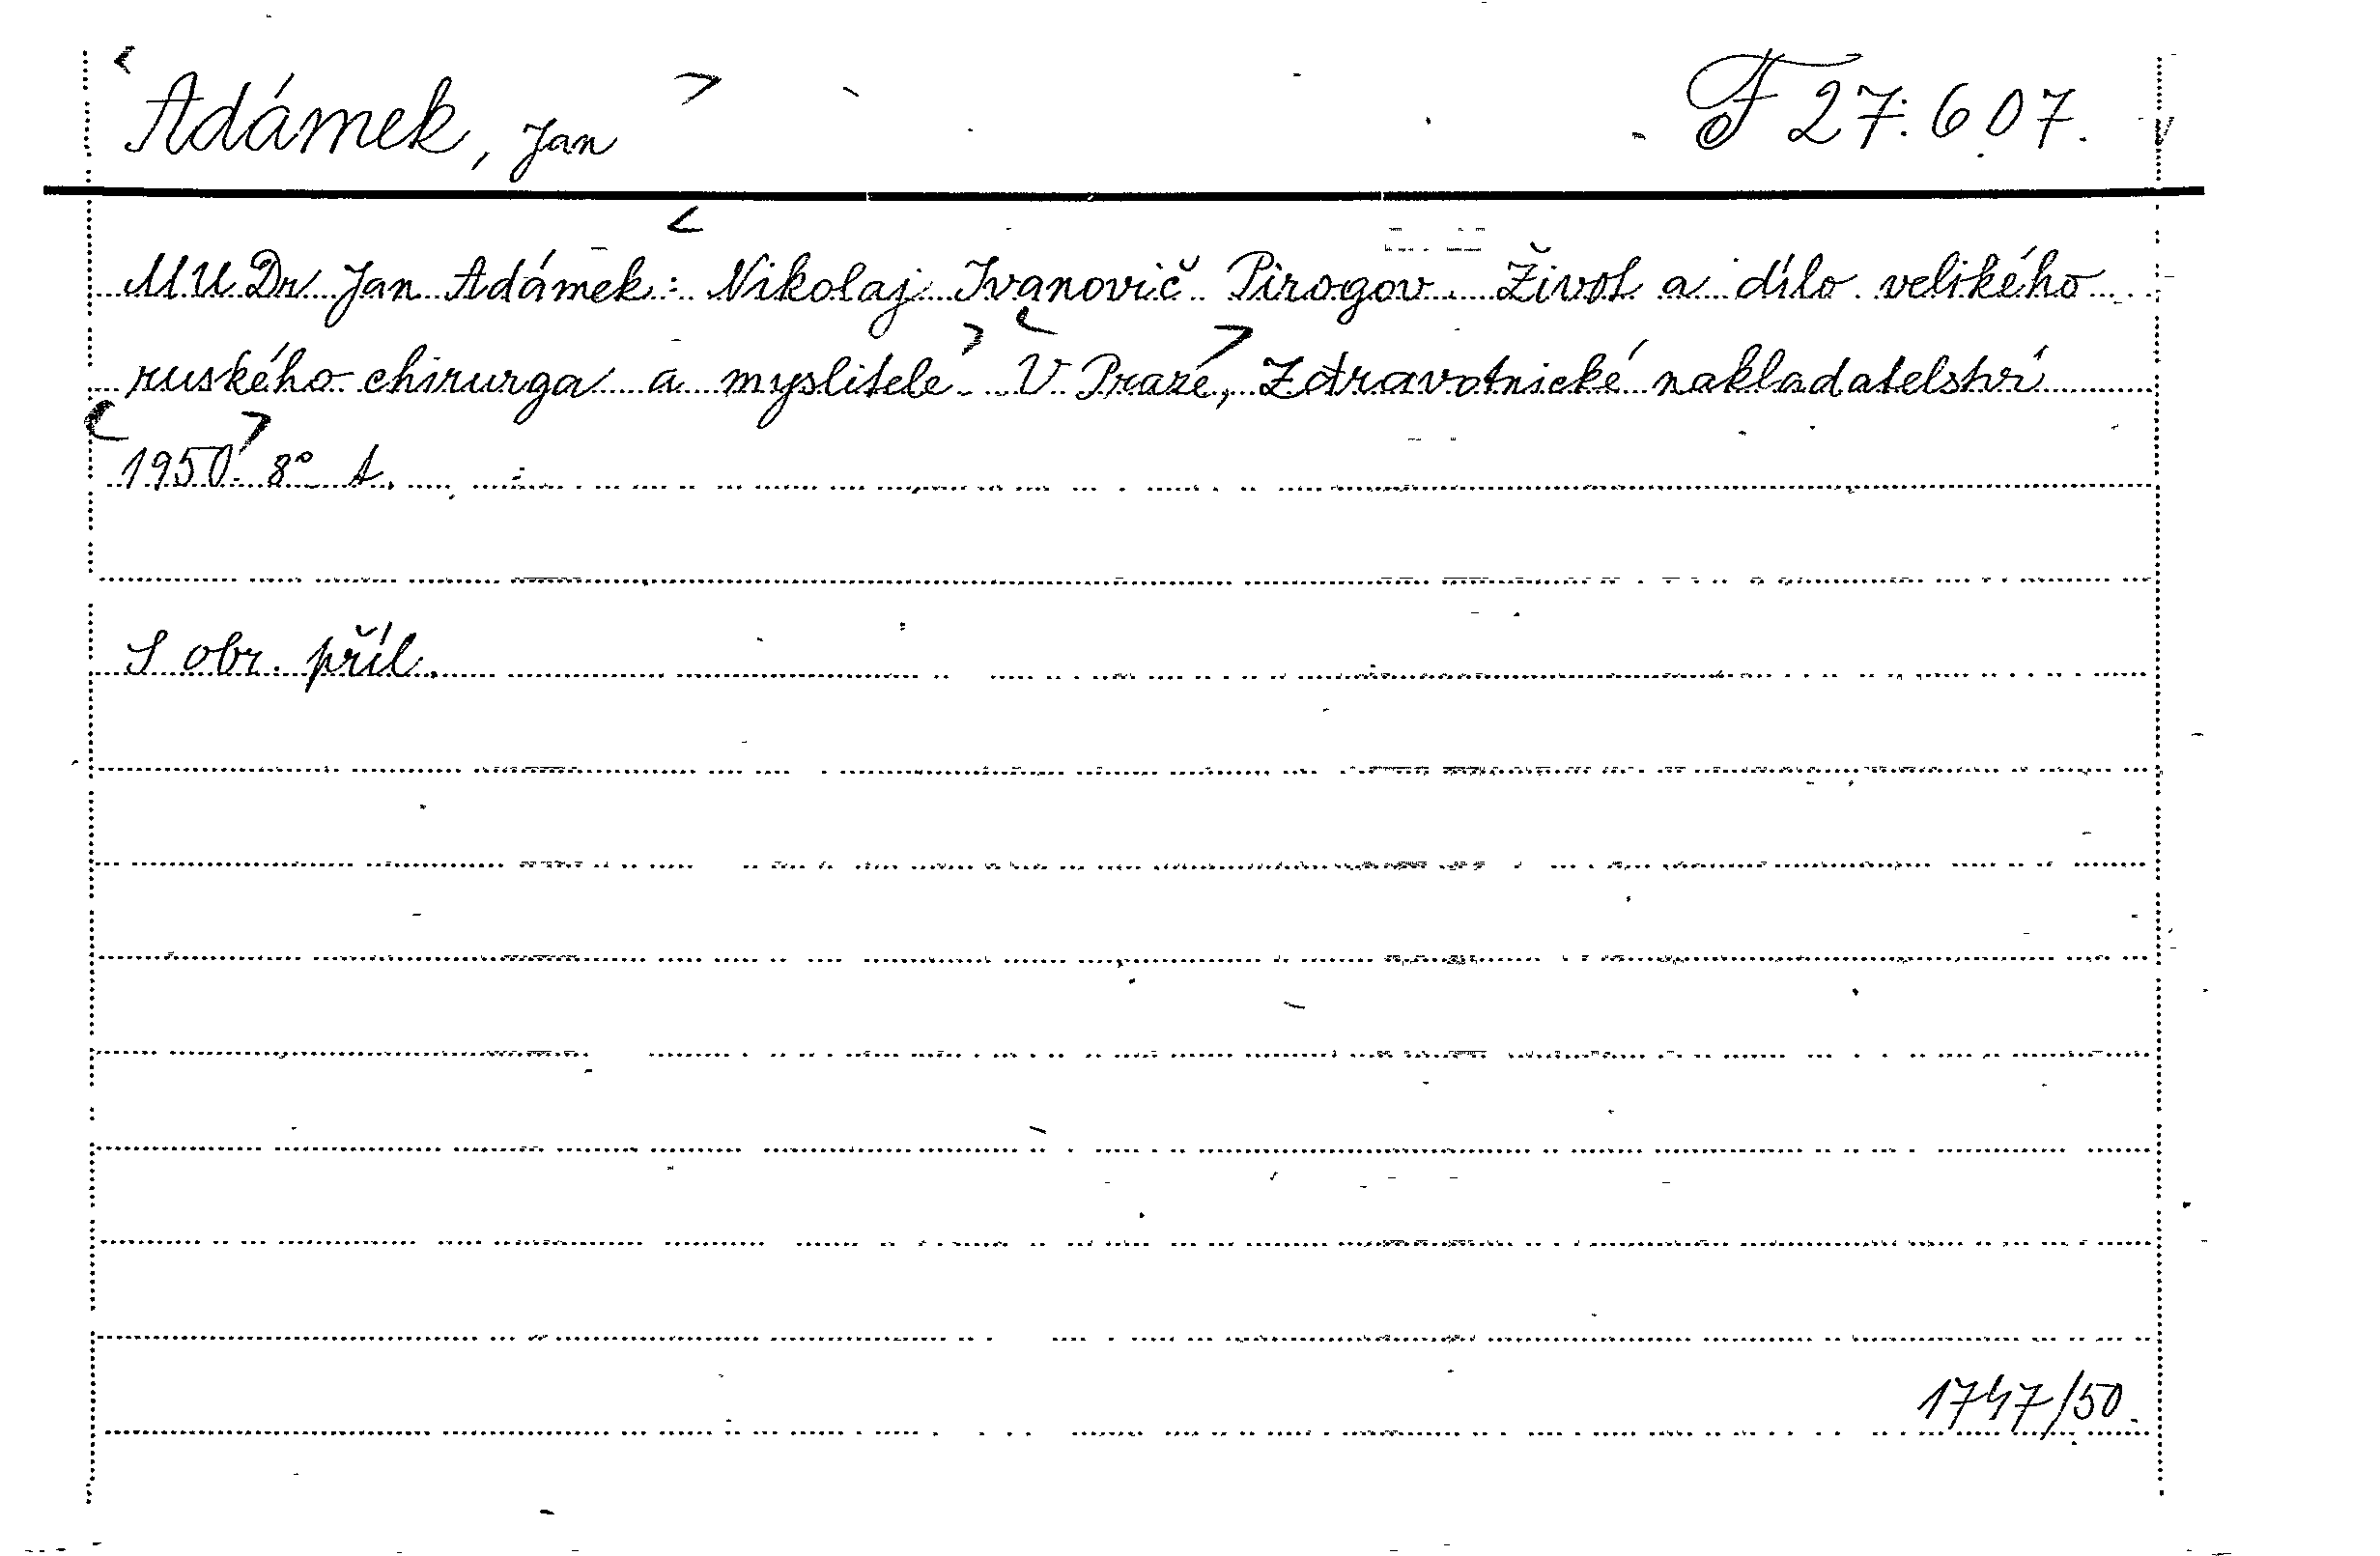 Adámek, Jan F 27.607.
MUDr Jan Adámek: Nikolaj Ivanovič Pirogov. Život a dílo velikého
ruského chirurga a myslitele. V Praze, Zdravotnické nakladatelství
1950. 8° t.
S obr. příl.
1747/50.